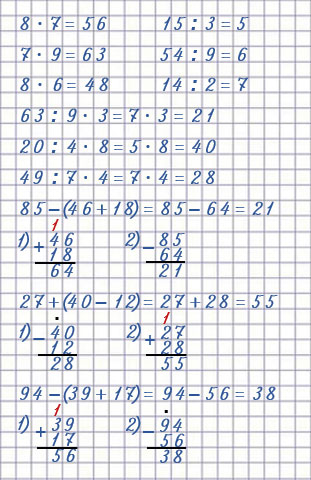 8 · 7 = 56   15 : 3 = 5
7 · 9 = 63   54 : 9 = 6
8 · 6 = 48   14 : 2 = 7
63 : 9 · 3 = 7 · 3 = 21
20 : 4 · 8 = 5 · 8 = 40
49 : 7 · 4 = 7 · 4 = 28
85 – (46 + 18) = 85 – 64 = 21
1
1) + 46   2) – 85
18   64
64   21
27 + (40 – 12) = 27 + 28 = 55
·   1
1) – 40   2) + 27
12   28
28   55
94 – (39 + 17) = 94 – 56 = 38
1   ·
1) + 39   2) – 94
17   56
56   38